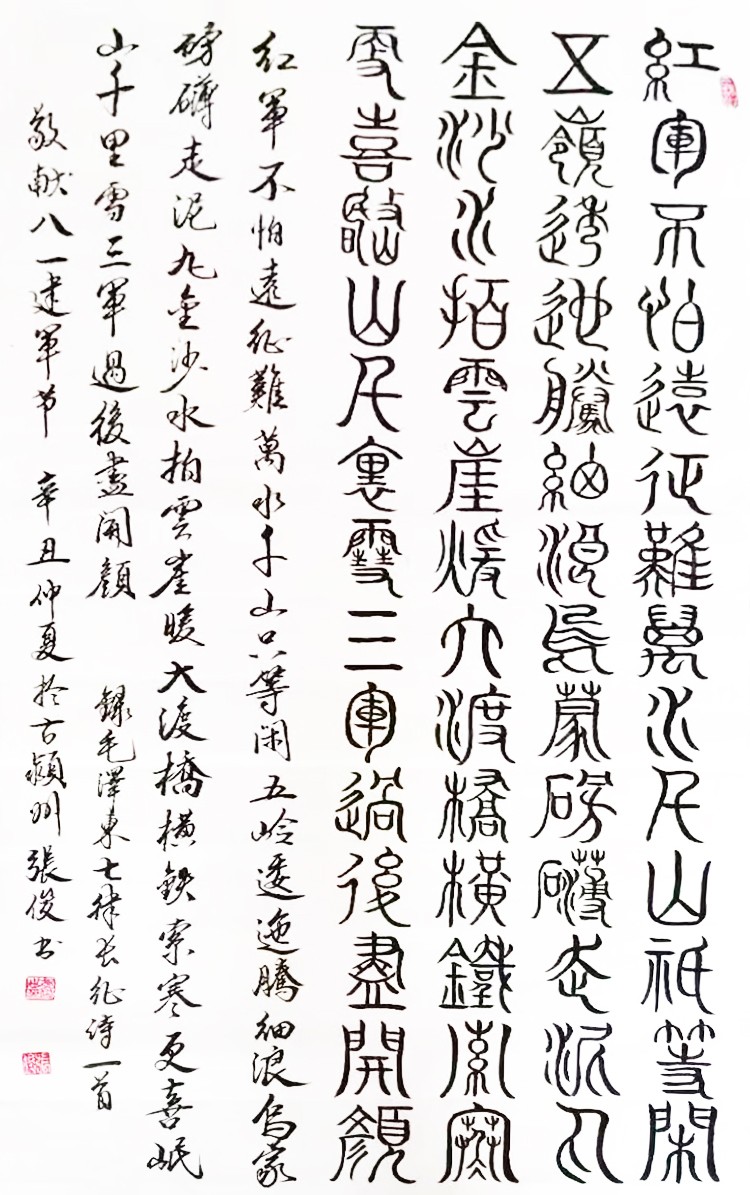 紅軍不怕遠征難萬水千山祇等閑
五嶺逶迤騰細浪烏蒙磅礴走泥丸
金沙水拍雲崖暖大渡橋橫鐵索寒
更喜岷山千裏雪三軍過後盡開顏
紅軍不怕遠征難萬水千山只等閑五岭逶迤騰細浪烏蒙
磅礴走泥丸金沙水拍雲崖暖大渡橋橫鉄索寒更喜岷
山千里雪三軍過後盡開顏 錄毛澤東七律長征詩一首
敬献八一建軍节 辛丑仲夏於古潁州張俊书